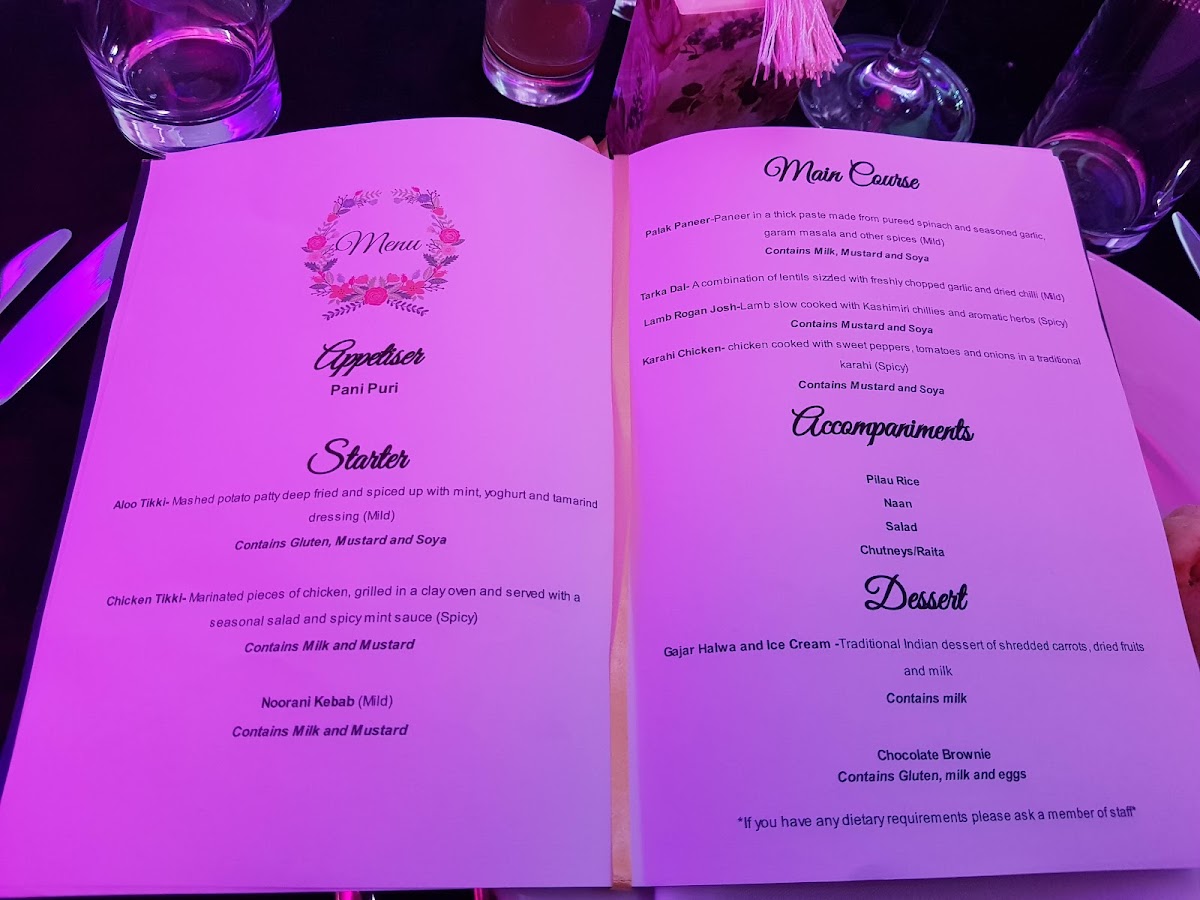 Menu
Appetiser
Pani Puri
Starter
Aloo Tikki- Mashed potato patty deep fried and spiced up with mint, yoghurt and tamarind
dressing (Mild)
Contains Gluten, Mustard and Soya
Chicken Tikki- Marinated pieces of chicken, grilled in a clay oven and served with a
seasonal salad and spicy mint sauce (Spicy)
Contains Milk and Mustard
Noorani Kebab (Mild)
Contains Milk and Mustard
Main Course
Palak Paneer-Paneer in a thick paste made from pureed spinach and seasoned garlic,
garam masala and other spices (Mild)
Contains Milk, Mustard and Soya
Tarka Dal- A combination of lentils sizzled with freshly chopped garlic and dried chilli (Mild)
Lamb Rogan Josh-Lamb slow cooked with Kashimiri chillies and aromatic herbs (Spicy)
Contains Mustard and Soya
Karahi Chicken- chicken cooked with sweet peppers, tomatoes and onions in a traditional
karahi (Spicy)
Contains Mustard and Soya
Accompaniments
Pilau Rice
Naan
Salad
Chutneys/Raita
Dessert
Gajar Halwa and Ice Cream -Traditional Indian dessert of shredded carrots, dried fruits
and milk
Contains milk
Chocolate Brownie
Contains Gluten, milk and eggs
*If you have any dietary requirements please ask a member of staff*